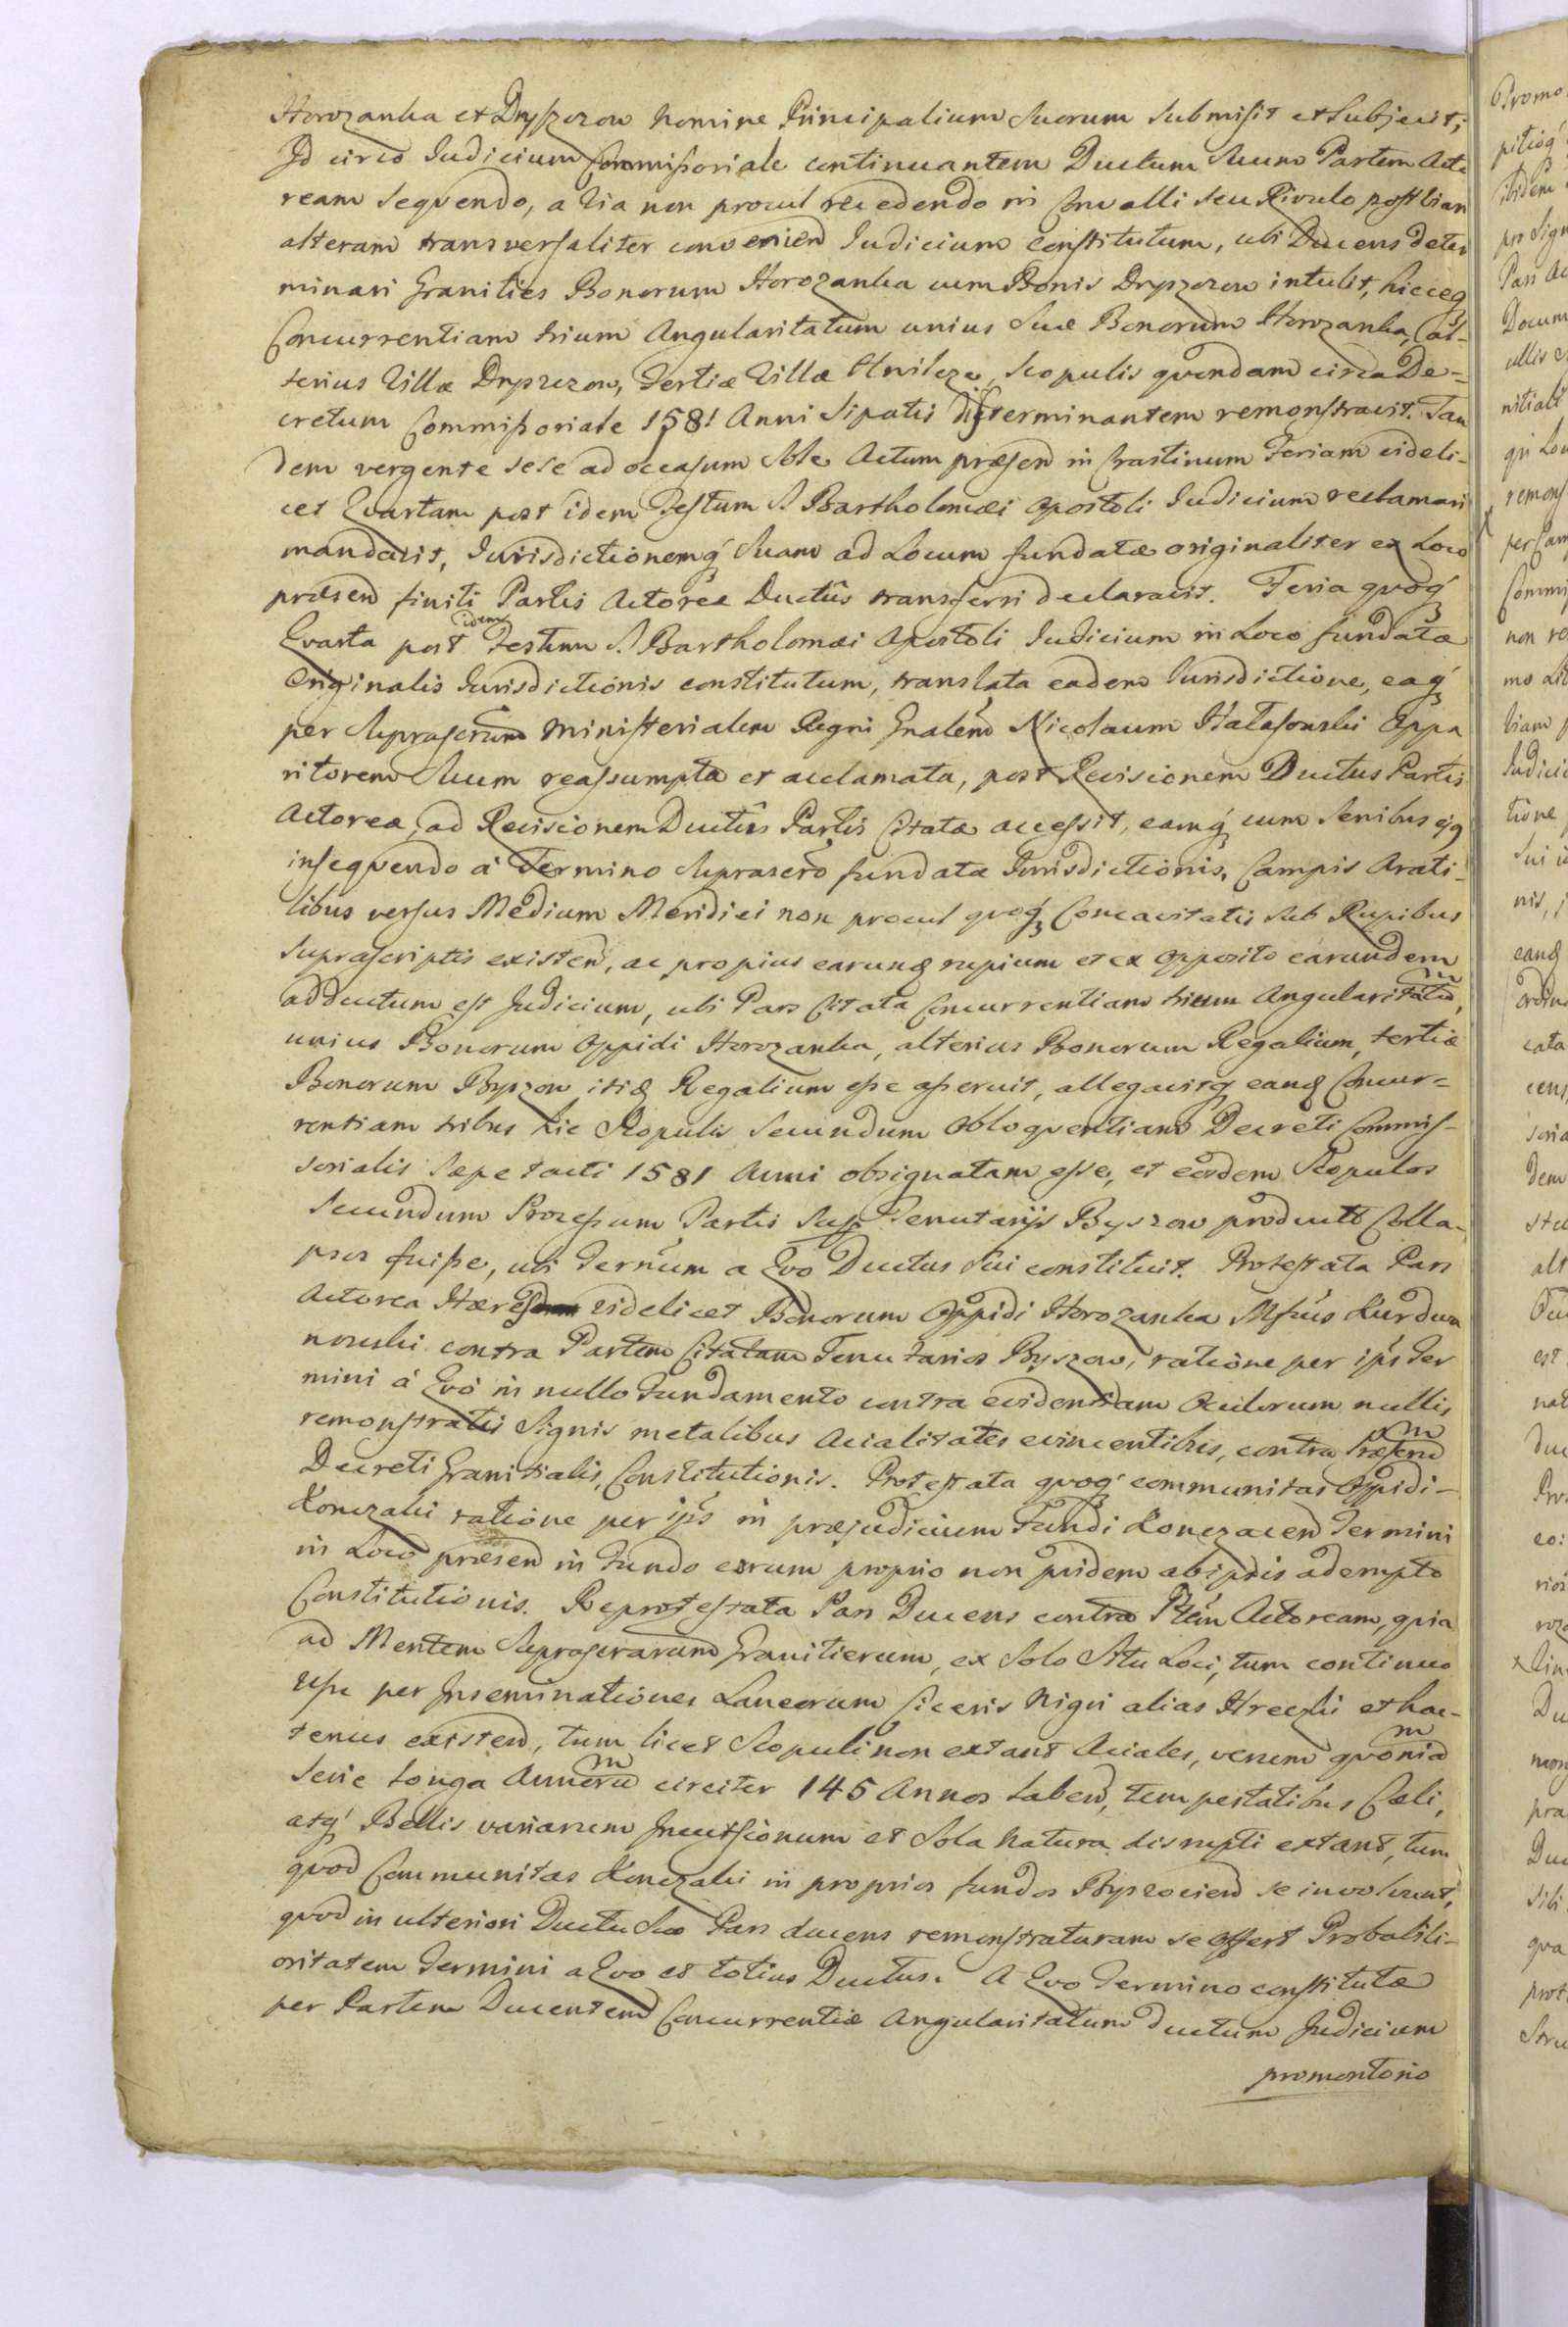 Horozanka et Dryszczow Nomine Principalium Suorum Submisit et Subjecit;
Id circo Judicium Commissoriale continuantem Ductum Suum Partem Acto
ream Seqvendo, a Via non procul recedendo in Convalli seu Rivulo post Viam
alteram transversaliter convenien Judicium constitutum, ubi Ducens deter
minari Granities Bonorum Horozanka cum Bonis Dryszczow intulit, hicceq
Concurrentiam trium Angularitatum unius Suæ Bonorum Horozanka, al-
terius Villæ Dryszczow, tertiæ Villæ Hnilcze, Scopulis qvondam circa De-
cretum Commissoriale 1581 Anni Sipatis disterminantem remonstravit. Tan
dem vergente sese ad occasum Sole Actum præsen in Crastinum Feriam videli-
cet Qvartam post idem Festum S. Bartholomæi Apostoli Judicium reclamari
mandavit, Jurisdictionemq Suam ad Locum fundatæ originaliter ex Loco
præsen finiti Partis Actoreæ Ductûs transferri declaravit. Feria qvoq
Qvarta post idem Festum S. Bartholomæi Apostoli Judicium in Loco fundatæ
Originalis Jurisdictionis constitutum, translata eadem Jurisdictione, eaq
per Suprascrum Ministerialem Regni Gnalem Nicolaum Hatasowski Appa
ritorem Suum reassumpta et acclamata, post Revisionem Ductus Partis
Actoreæ, ad Revisionem Ductûs Partis Citatæ accessit, eamq cum Senibus ejq
inseqvendo á Termino Suprascro fundatæ Jurisdictionis, Campis Arati-
libus versus Medium Meridiei non procul qvoq Concavitatis Sub Rupibus
Suprascriptis existen, ac propius earunq rupium et ex opposito earundem
adductum est Judicium, ubi Pars Citata Concurrentiam trium Angularitatum,
unius Bonorum Oppidi Horozanka, alterius Bonorum Regalium, tertiæ
Bonorum Byszow itiq Regalium esse asseruit, allegavitq eanq Concur-
rentiam tribus hic Scopulis Secundum Obloqventiam Decreti Commis-
sorialis Sæpe tacti 1581 Anni obsignatam esse, et eosdem Scopulos
Secundum Processum Partis Suæ Tenutariis Byszow producto Colla-
psos fuisse, ubi Ternum a Qvo Ductus Sui constituit. Protestata Pars
Actorea Hæres videlicet Bonorum Oppidi Horozanka Mfcus Kurdwa
nowski contra Partem Citatam Tenutarios Byszow, ratione per ips Ter
mini á Qvo in nullo Fundamento contra evidentiam Oculorum nullis
remonstratis Signis metalibus Acialitates evincentibus, contra Præsen
Decreti Granitialis, Constitutionis. Protestata qvoq communitas Oppidi
Konczaki ratione per ips in præjudicium Fundi Konczacen Termini
in Loco præsen in Fundo eorum proprio non pridem ab ipsis adempto
Constitutionis. Reprotestata Pars Ducens contra Ptem Actoream, qvia
ad Mentem Suprascrarum Granitierum, ex Solo Situ Loci, tum continuo
usu per Inseminationes Laneorum Siceris Nigri alias Hreczki et hac-
tenus existen, tum licet Scopuli non extant Aciales, verum qvoniam
Serie longa Annorum circiter 145 Annos haben, tempestatibus Cæli,
atq Bellis variarum Incursionum et Sola Natura disrupti extant, tum
qvod Communitas Konczaki in proprios fundos Byszovien se involvunt,
qvod in ulteriori Ductu Suo Pars ducens remonstraturam se offert Probabili-
oritatem Termini a Qvo et totius Ductus. A Qvo Termino constitutæ
per Partem Ducentem Concurrentiæ Angularitatum ductum Judicium
promontorio